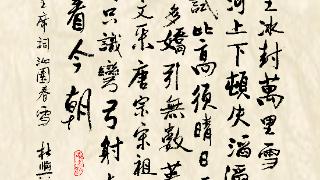 里冰封萬里雪
河上下頓失滔滔
試比高須晴日
多嬌引無數英
文采唐宗宋祖
只識彎弓射
看今朝
主席詞沁園春雪